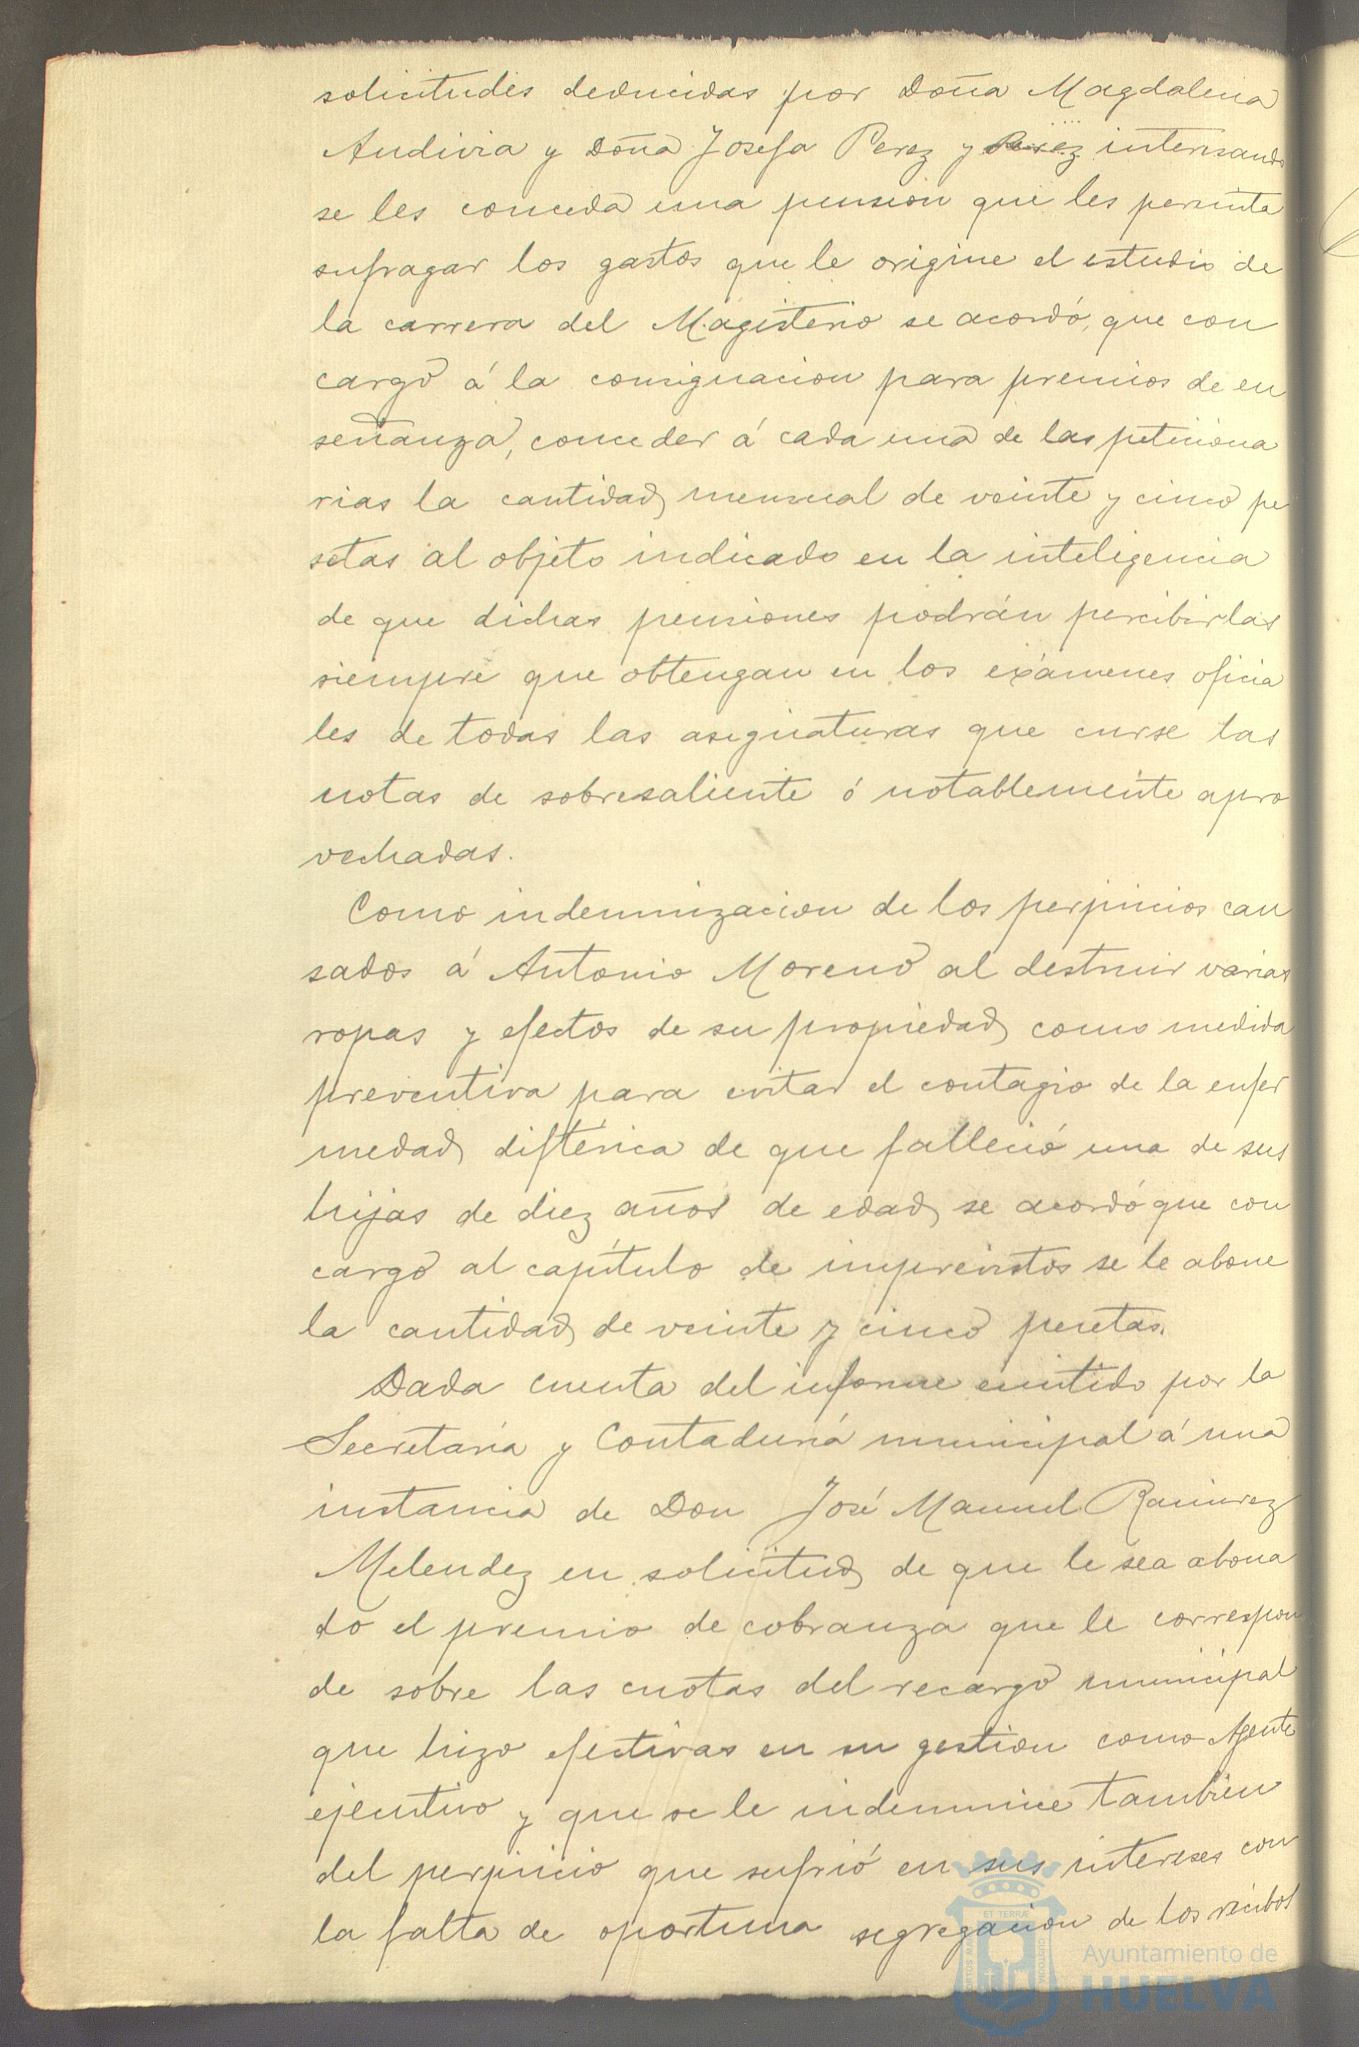 solicitudes deducidas por Doña Magdalena
Audivia y Doña Josefa Perez y Perez interesando
se les conceda una pension que les permita
sufragar los gastos que le origine el estudio de
la carrera del Magisterio se acordó, que con
cargo á la consignacion para premios de en
señanza, conceder á cada una de las peticiona
rias la cantidad mensual de veinte y cinco pe
setas al objeto indicado en la inteligencia
de que dichas pensiones podrán percibirlas
siempre que obtengan en los exámenes oficia
les de todas las asignaturas que curse las
notas de sobresaliente ó notablemente apro
vechadas.
Como indemnizacion de los perjuicios cau
sados á Antonio Moreno al destruir varias
ropas y efectos de su propiedad como medida
preventiva para evitar el contagio de la enfer
medad diftérica de que falleció una de sus
hijas de diez años de edad se acordó que con
cargo al capítulo de imprevistos se le abone
la cantidad de veinte y cinco pesetas.
Dada cuenta del informe emitido por la
Secretaría y Contaduría municipal á una
instancia de Don José Manuel Ramirez
Melendez en solicitud de que le sea abona
do el premio de cobranza que le correspon
de sobre las cuotas del recargo municipal
que hizo efectivas en su gestion como Agente
ejecutivo y que se le indemnice tambien
del perjuicio que sufrió en sus intereses con
la falta de oportuna segregacion de los recibos
Ayuntamiento de
HUELVA